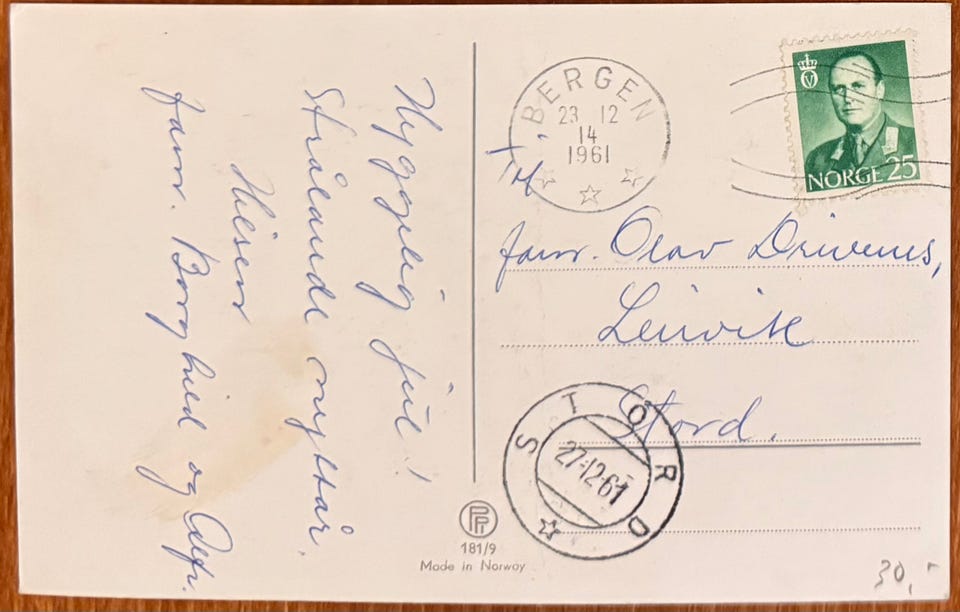 Hyggelig jul!
Strålande nyttår.
Hilsen
fam. Borghild og Alf.
BERGEN
23 12
14
1961
NORGE 25
Til
fam. Olav Drivenes,
Leirvik
Stord.
STORD
27.12.61
PF
181/9
Made in Norway
30,-